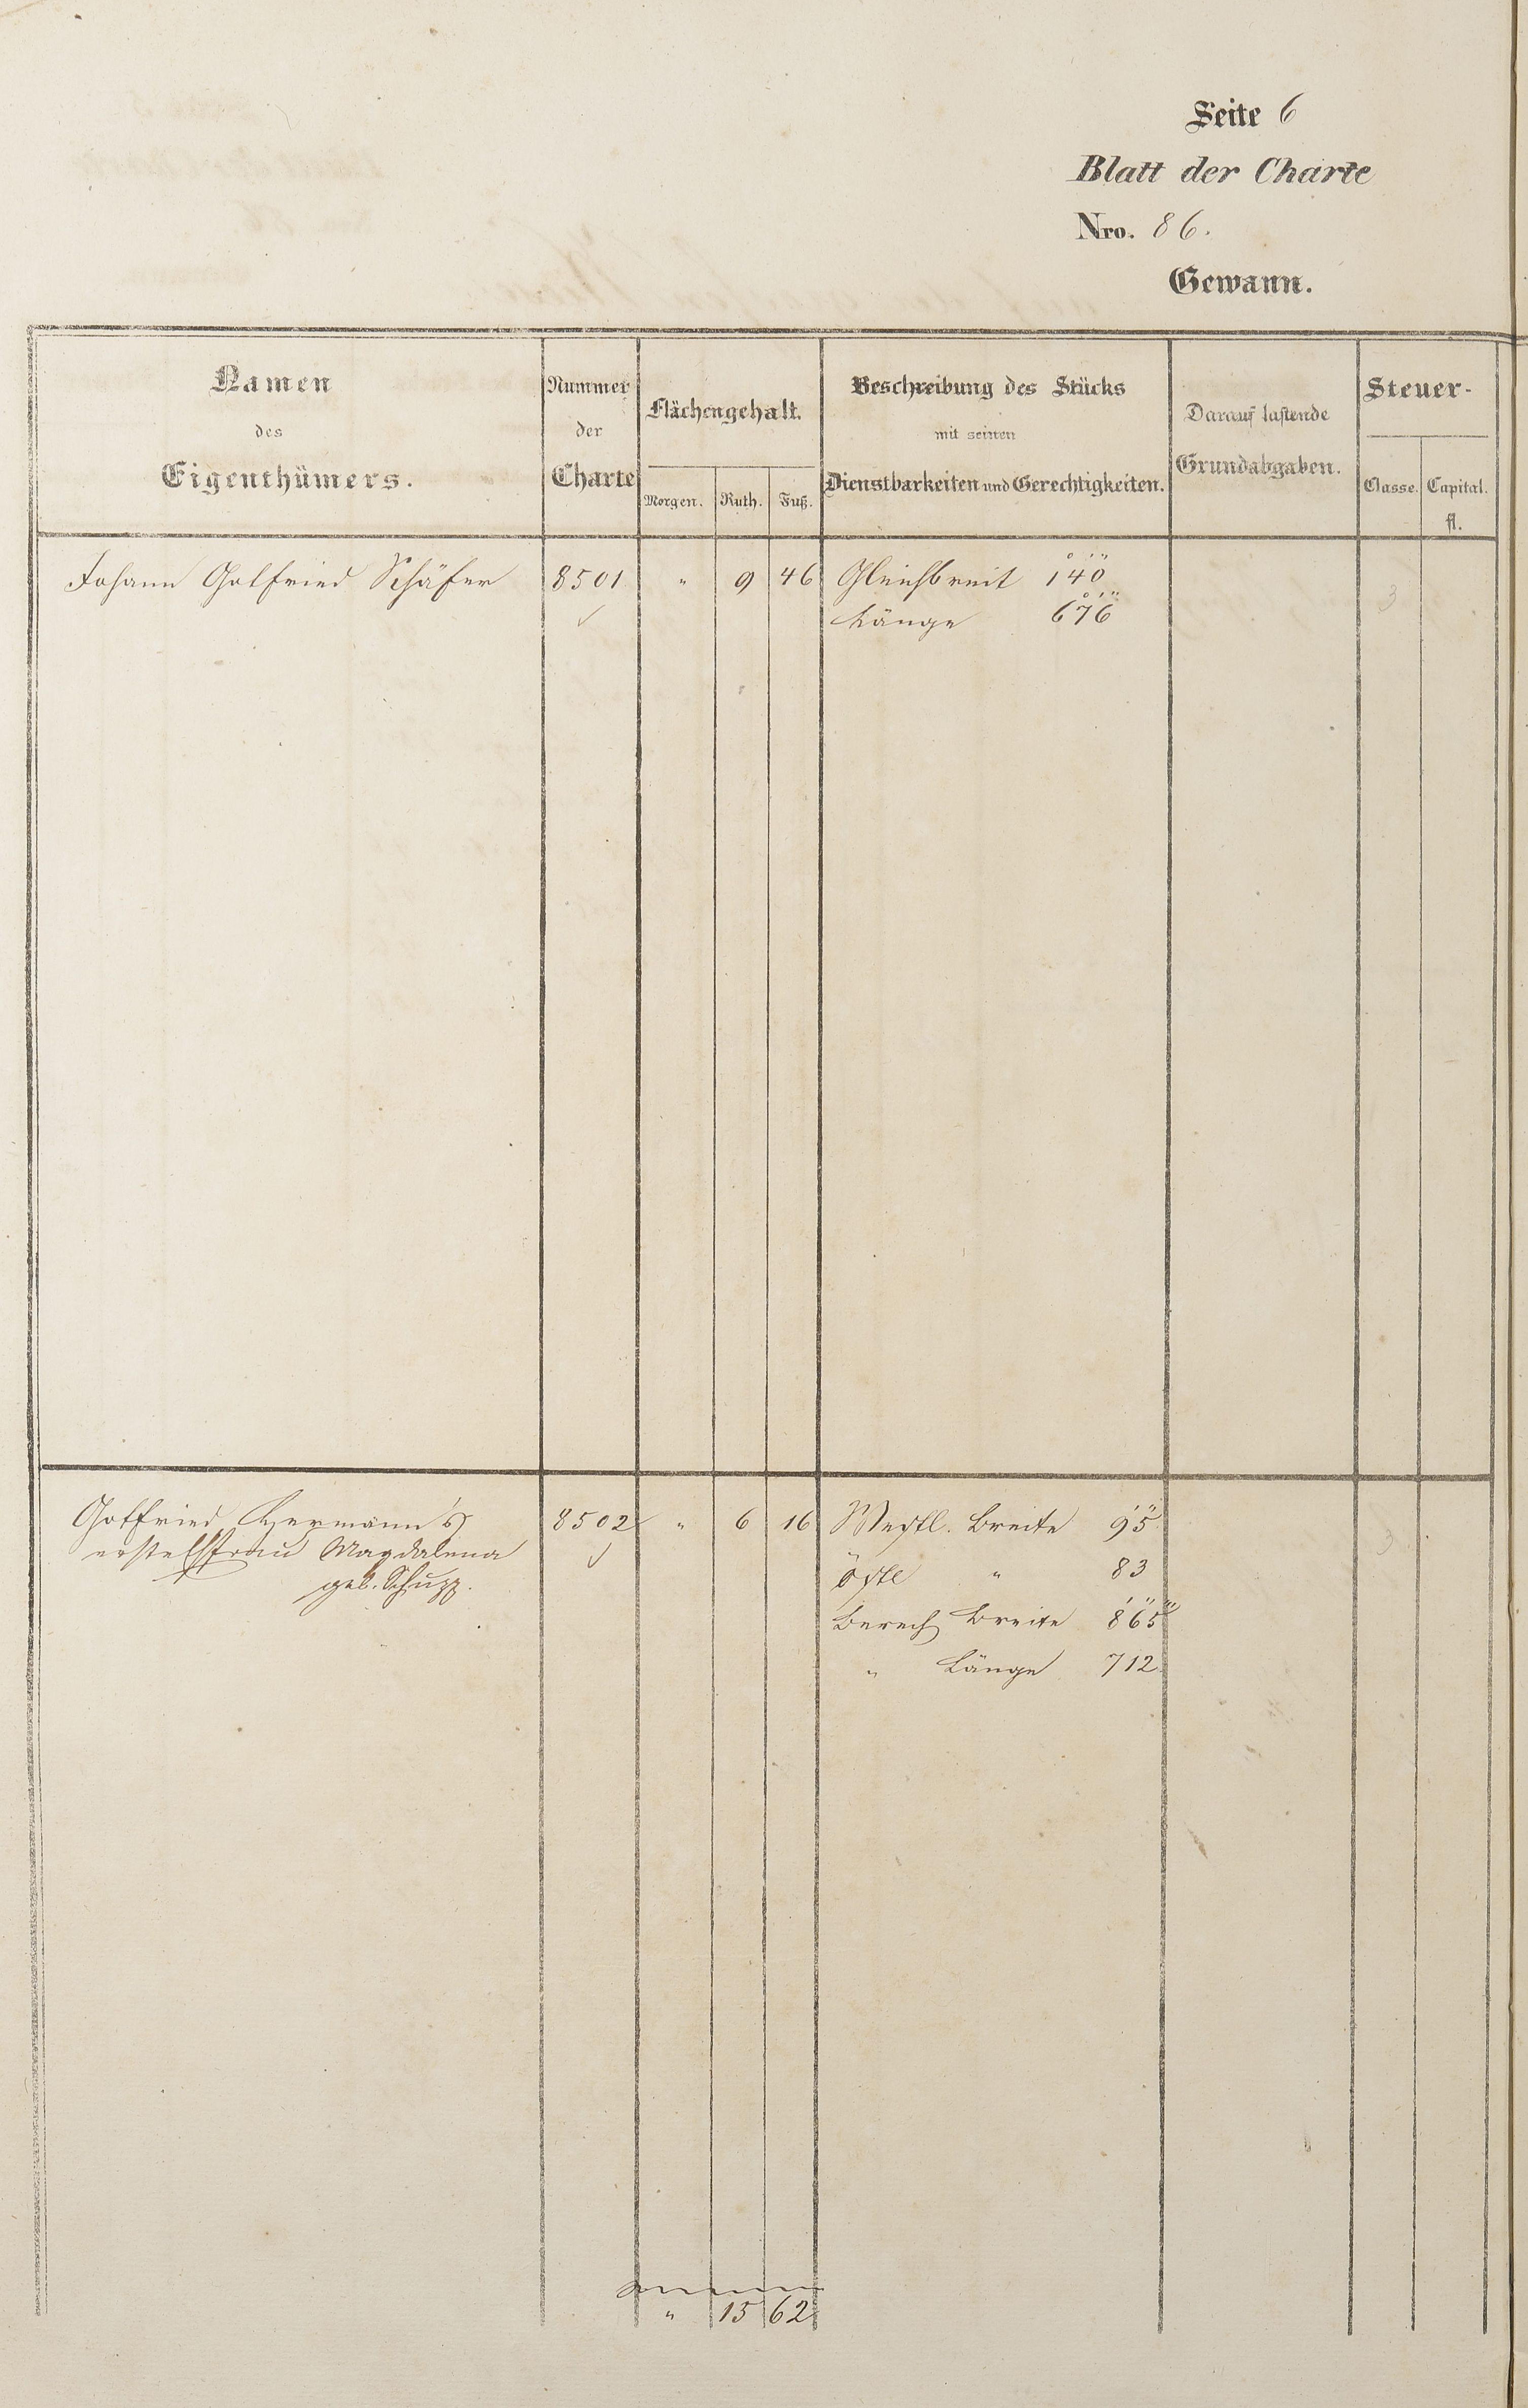 Seite 6
Blatt der Charte
Nro. 86.
Gewann.
Namen
des
Eigenthümers.
Nummer
der
Charte
Flächengehalt.
Morgen. Ruth. Fuß.
Beschreibung des Stücks
mit seinen
Dienstbarkeiten und Gerechtigkeiten.
Darauf lastende
Grundabgaben.
Steuer-
Classe. Capital.
fl.
Johann Gotfried Schäfer 8501 " 9 46 Gleichbreit 140
Länge 676
3
Gotfried Hermann's 8502 " 6 16 Westl. Breite 95
Magdalena östl " 83
geb. Schupp. Berech Breite 865
" Länge 712
3
" 15 62